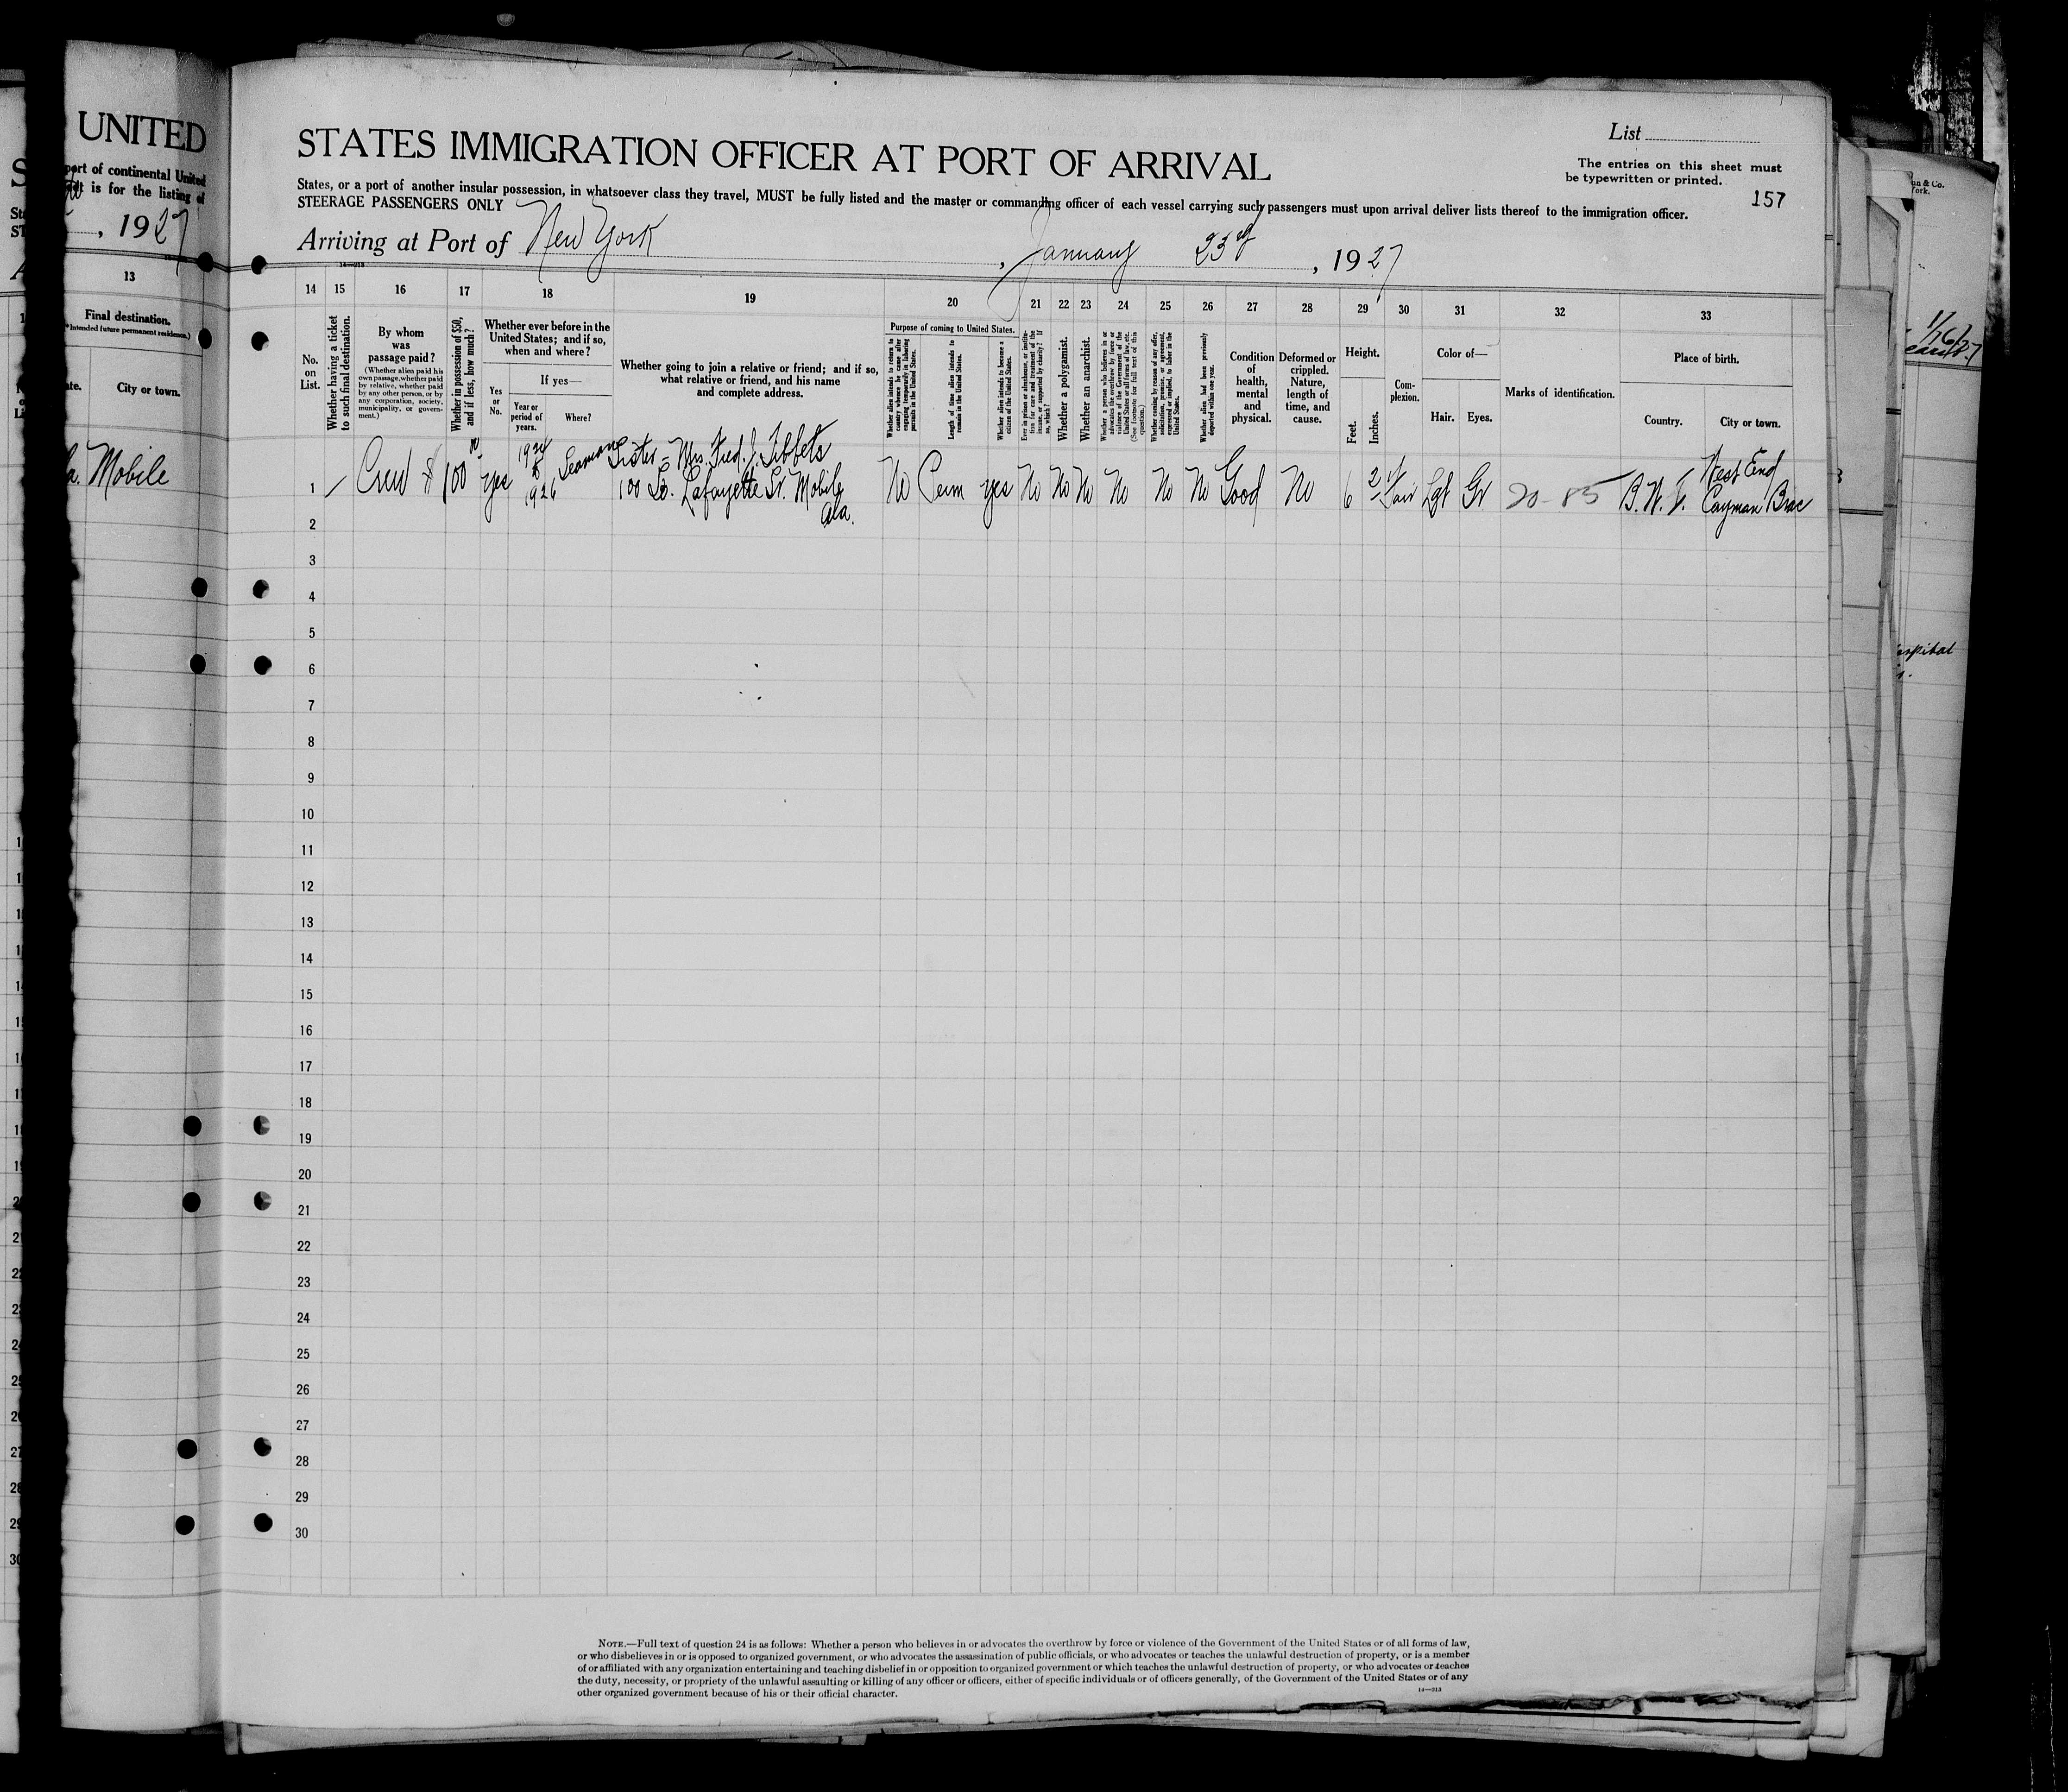 UNITED
port of continental United
is for the listing of
, 1927
13
Final destination.
(*Intended future permanent residence.)
City or town.
Mobile
STATES IMMIGRATION OFFICER AT PORT OF ARRIVAL
List
The entries on this sheet must
be typewritten or printed.
157
States, or a port of another insular possession, in whatsoever class they travel, MUST be fully listed and the master or commanding officer of each vessel carrying such passengers must upon arrival deliver lists thereof to the immigration officer.
STEERAGE PASSENGERS ONLY
Arriving at Port of New York, January 23rd, 1927
14 15 16 17 18 19 20 21 22 23 24 25 26 27 28 29 30 31 32 33
No. on List.
Whether having a ticket to such final destination.
By whom was passage paid?
(Whether alien paid his own passage, whether paid by relative, whether paid by any other person, or by any corporation, society, municipality, or government.)
Whether in possession of $50, and if less, how much?
Whether ever before in the United States; and if so, when and where?
Yes or No.
If yes—
Year or period of years.
Where?
Whether going to join a relative or friend; and if so, what relative or friend, and his name and complete address.
Purpose of coming to United States.
Whether alien intends to return to country whence he came after engaging temporarily in laboring pursuits in the United States.
Length of time alien intends to remain in the United States.
Whether alien intends to become a citizen of the United States.
Ever in prison or almshouse, or institution for care and treatment of the insane, or supported by charity? If so, which?
Whether a polygamist.
Whether an anarchist.
Whether a person who believes in or advocates the overthrow by force or violence of the Government of the United States or all forms of law, etc. (See footnote for full text of this question.)
Whether coming by reason of any offer, solicitation, promise, or agreement, expressed or implied, to labor in the United States.
Whether alien had been previously deported within one year.
Condition of health, mental and physical.
Deformed or crippled. Nature, length of time, and cause.
Height.
Feet.
Inches.
Complexion.
Color of—
Hair. Eyes.
Marks of identification.
Place of birth.
Country. City or town.
1 Crew $100 yes 1924 to 1926 Seaman Sister - Mrs. Fred. J. Tibbets
100 So. Lafayette St. Mobile
Ala.
No Perm yes No No No No No No Good No 6 2 Fair Lgt Gr 20-85 B.W.I. West End
Cayman Brac
2
3
4
5
6
7
8
9
10
11
12
13
14
15
16
17
18
19
20
21
22
23
24
25
26
27
28
29
30
NOTE.—Full text of question 24 is as follows: Whether a person who believes in or advocates the overthrow by force or violence of the Government of the United States or of all forms of law,
or who disbelieves in or is opposed to organized government, or who advocates the assassination of public officials, or who advocates or teaches the unlawful destruction of property, or is a member
of or affiliated with any organization entertaining and teaching disbelief in or opposition to organized government or which teaches the unlawful destruction of property, or who advocates or teaches
the duty, necessity, or propriety of the unlawful assaulting or killing of any officer or officers, either of specific individuals or of officers generally, of the Government of the United States or of any
other organized government because of his or their official character.
14—313